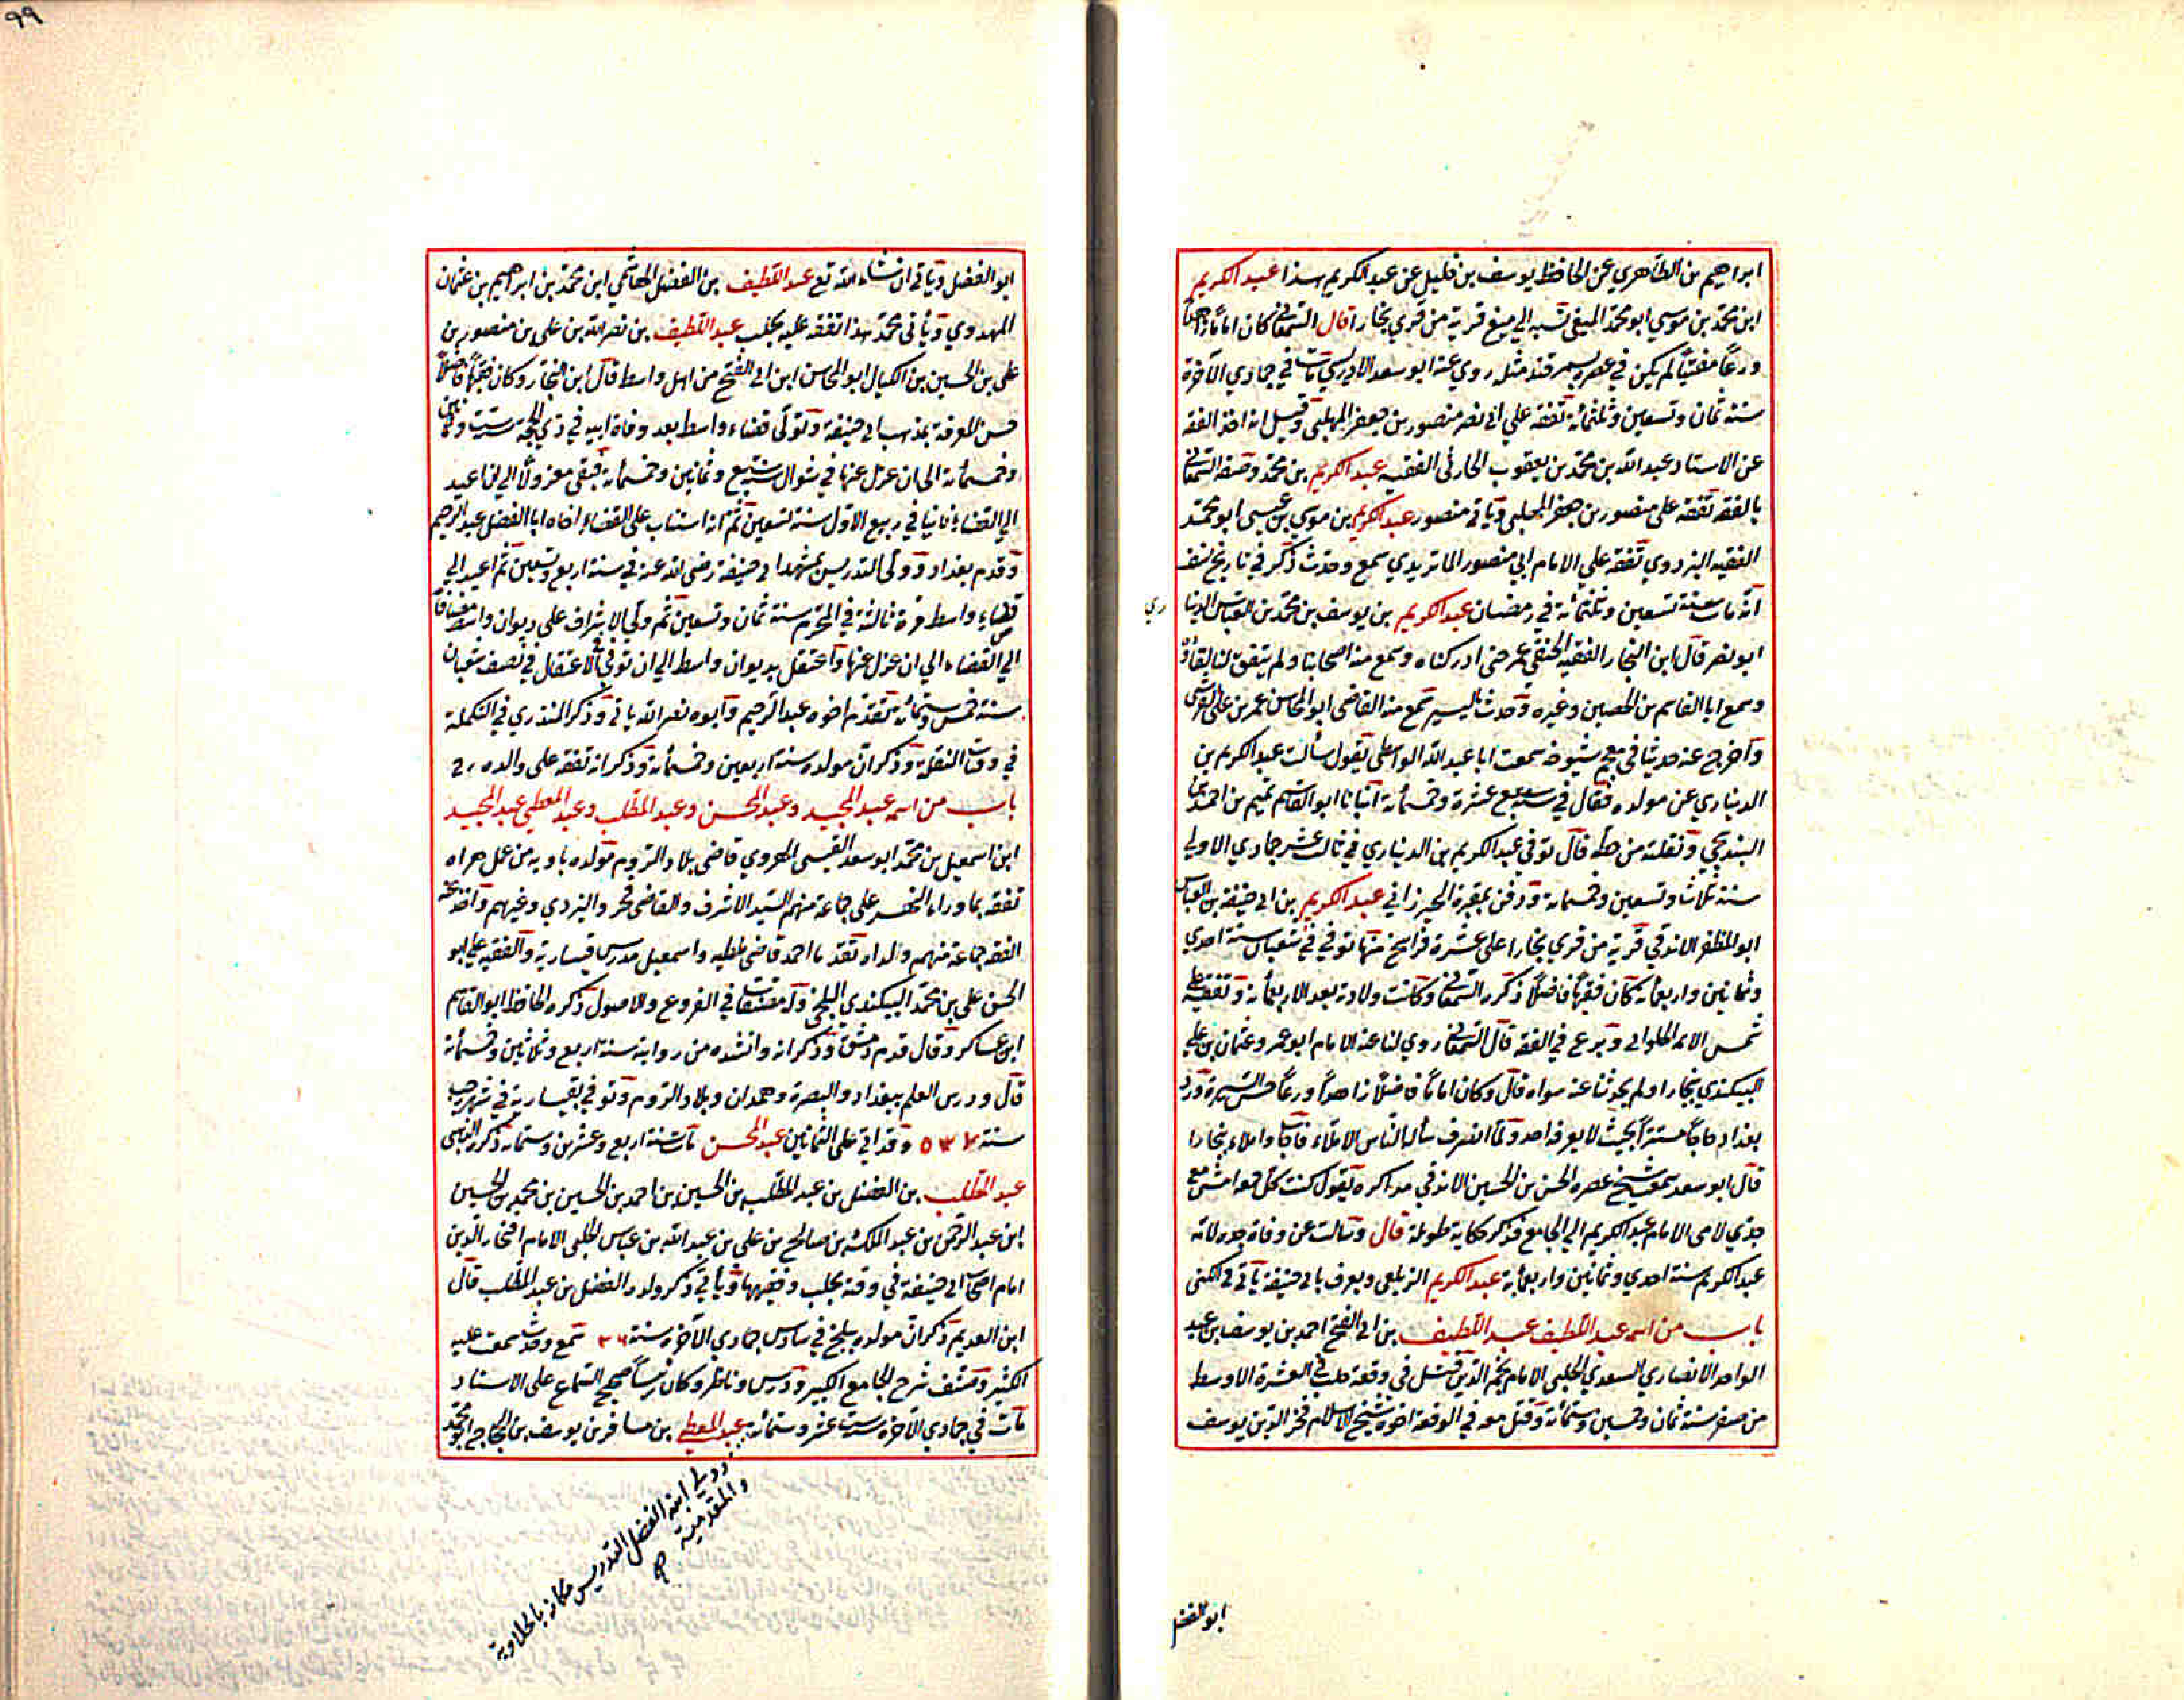 ابراهيم بن الطاهري عن الحافظ يوسف بن خليل عن عبد الكريم هذا عبد الكريم
ابن محمد بن موسي ابو محمد الميغى نسبه الي ميغ قرية من قري بخارا قال السمعانى كان اماما زاهدا
ورعًا مفتيًا لم يكن في عصره بسمرقند مثله روي عنه ابو سعد الادريسي مات في جمادي الآخرة
سنة ثمان وتسعين وثلثمائة تفقه علي ابى نصر منصور بن جعفر المهلبي وقيل انه اخذ الفقه
عن الاستاد عبد الله بن محمد بن يعقوب الحارثى الفقيه عبد الكريم بن محمد وصفه السمعانى
بالفقه تفقه على منصور بن جعفر المهلبي وياتى منصور عبد الكريم بن موسي بن عيسى ابو محمد
الفقيه البزدوي تفقه علي الامام ابي منصور الماتريدي سمع وحدث ذكر في تاريخ نسف
انه مات سنة تسعين وثلثمائة في رمضان عبد الكريم بن يوسف بن محمد بن العباس الدينا
ري
ابو نصر قال ابن النجار الفقيه الحنفي عمر حتى ادركناه وسمع منه اصحابنا ولم يتفق لنا لقاؤه
وسمع ابا القاسم بن الحصين وغيره وحدث باليسير سمع منه القاضى ابو المحاسن عمر بن على القرشى
واخرج عنه حديثا في معجم شيوخه سمعت ابا عبد الله الواسطى يقول سألت عبد الكريم بن
الديناري عن مولده فقال في سنة سبع عشرة وخمسمائة انبانا ابو القاسم تميم بن احمد
البندنيجي ونقلته من خطه قال توفي عبد الكريم بن الديناري في ثالث عشر جمادي الاولي
سنة ثلاث وتسعين وخمسمائة ودفن بمقبرة الخيزراني عبد الكريم بن ابى حنيفة بن العباس
ابو المظفر الاندقي قرية من قري بخارا على عشرة فراسخ منها توفي في شعبان سنة احدي
وثمانين واربعمائة كان فقيهًا فاضلًا ذكره السمعانى وكانت ولادته بعد الاربعمائة وتفقه على
شمس الائمة الحلواني وبرع في الفقه قال السمعانى روي لنا عنه الامام ابو عمرو عثمان بن علي
البيكندي ببخارا ولم يحدثنا عنه سواه قال وكان اماما فاضلًا زاهدًا ورعًا حسن السيرة ورد
بغداد حاجًا مستترًا بحيث لا يعرفه احد ولما انصرف سأله الناس الاملاء فاجاب واملاء ببخارا
قال ابو سعد سمعت شيخ عصره الحسن بن الحسين الاندقي مذاكره يقول كنت كل جمعة امشى مع
جدي لامى الامام عبد الكريم الي الجامع فذكر حكاية طويلة قال وسالت عن وفاة جده لامه
عبد الكريم سنة احدي وثمانين واربعمائة عبد الكريم الزيلعى ويعرف بابى حنيفة ياتى في الكنى
باب من اسمه عبد اللطيف عبد اللطيف بن ابى الفتح احمد بن يوسف بن عبد
الواحد الانصاري السعدي الحلبي الامام نجم الدين قتل فى وقعة حلب فى العشرة الاوسط
من صفر سنة ثمان وخمسين وستمائة وقتل معه في الوقعة اخوه شيخ الاسلام فخر الدين يوسف
ابو الفضل
٩٩
ابو الفضل وياتى ان شاء الله تع عبد اللطيف بن الفضل الهاشمي ابن محمد بن ابراهيم بن عثمان
المهدوي وياتى محمد هذا تفقه عليه بحلب عبد اللطيف بن نصر الله بن على بن منصور بن
على بن الحسين بن الكيال ابو المحاسن ابن ابى الفتح من اهل واسط قال ابن النجار وكان فقيها فاضلًا
حسن المعرفة بمذهب ابى حنيفة وتولى قضاء واسط بعد وفاة ابيه في ذي الحجة سنة ست وثمانين
وخمسمائة الى ان عزل عنها في شوال سنة سبع وثمانين وخمسمائة فبقى معزولًا الي ان اعيد
الي القضاء ثانيا في ربيع الاول سنة تسعين ثم انه استناب على القضاء اخاه ابا الفضل عبد الرحيم
وقدم بغداد وولى التدريس بمشهد ابى حنيفة رضى الله عنه في سنة اربع وتسعين ثم اعيد الي
قضاء واسط مرة ثالثة في المحرم سنة ثمان وتسعين ثم ولى الاشراف على ديوان واسط مضافًا
الي القضاء الي ان عزل عنها واعتقل بديوان واسط الى ان توفي فى الاعتقال في نصف شعبان
سنة خمس وستمائة تقدم اخوه عبد الرحيم وابوه نصر الله ياتى وذكره المنذري في التكملة
في وفيات النقلة وذكر ان مولده سنة اربعين وخمسمائة وذكر انه تفقه على والده
باب من اسمه عبد المجيد وعبد المحسن وعبد المطلب وعبد المعطى عبد المجيد
ابن اسمعيل بن محمد ابو سعد القيسى الهروي قاضى بلاد الروم مولده باوبه من عمل هراه
تفقه بما وراء النهر على جماعة منهم السيد الاشرف والقاضى فخر والبزدي وغيرهم واخذ عنه
الفقه جماعة منهم ولداه تقدما احمد قاضى ملطيه واسمعيل مدرس قيسارية والفقيه علي ابو
الحسن على بن محمد البيكندي البلخى وله مصنفات في الفروع والاصول ذكره الحافظ ابو القاسم
ابن عساكر وقال قدم دمشق وذكر انه وانشده من روايته سنة اربع وثلاثين وخمسمائة
قال ودرس العلم ببغداد والبصرة وهمدان وبلاد الروم وتوفي بقيسارية في شهر رجب
سنة ٥٣٧ وقد اتى على الثمانين عبد المحسن مات سنة اربع وعشرين وستمائة ذكره الذهبى
عبد المطلب بن الفضل بن عبد المطلب بن الحسين بن احمد بن الحسين بن محمد بن الحسين
ابن عبد الرحمن بن عبد الملك بن صالح بن على بن عبد الله بن عباس الحلبى الامام افتخار الدين
امام اصحاب ابى حنيفة في وقته بحلب وفقيهها وياتي ذكر ولده الفضل بن عبد المطلب قال
ابن العديم ذكر ان مولده ببلخ في سادس جمادي الآخرة سنة ٣٦ سمع وحدث سمعت عليه
الكثير وصنف شرح الجامع الكبير ودرس وناظر وكان رئيسًا صحيح السماع على الاسناد
مات في جمادي الآخرة سنة ست عشر وستمائة عبد المعطي بن مسافر بن يوسف بن الحجاج ابو محمد
وولي ابنه الفضل التدريس مكانه بالحلاوية
والمقدمية صح